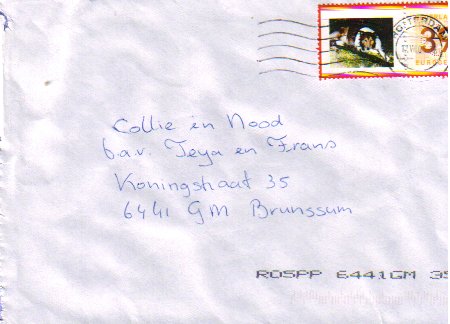 ROTTERDAM
39
EUROCE
Collie in Nood
b.a.v. Teya en Frans
Koningshaat 35
6441 GM Brunssum
ROSPP 6441GM 35